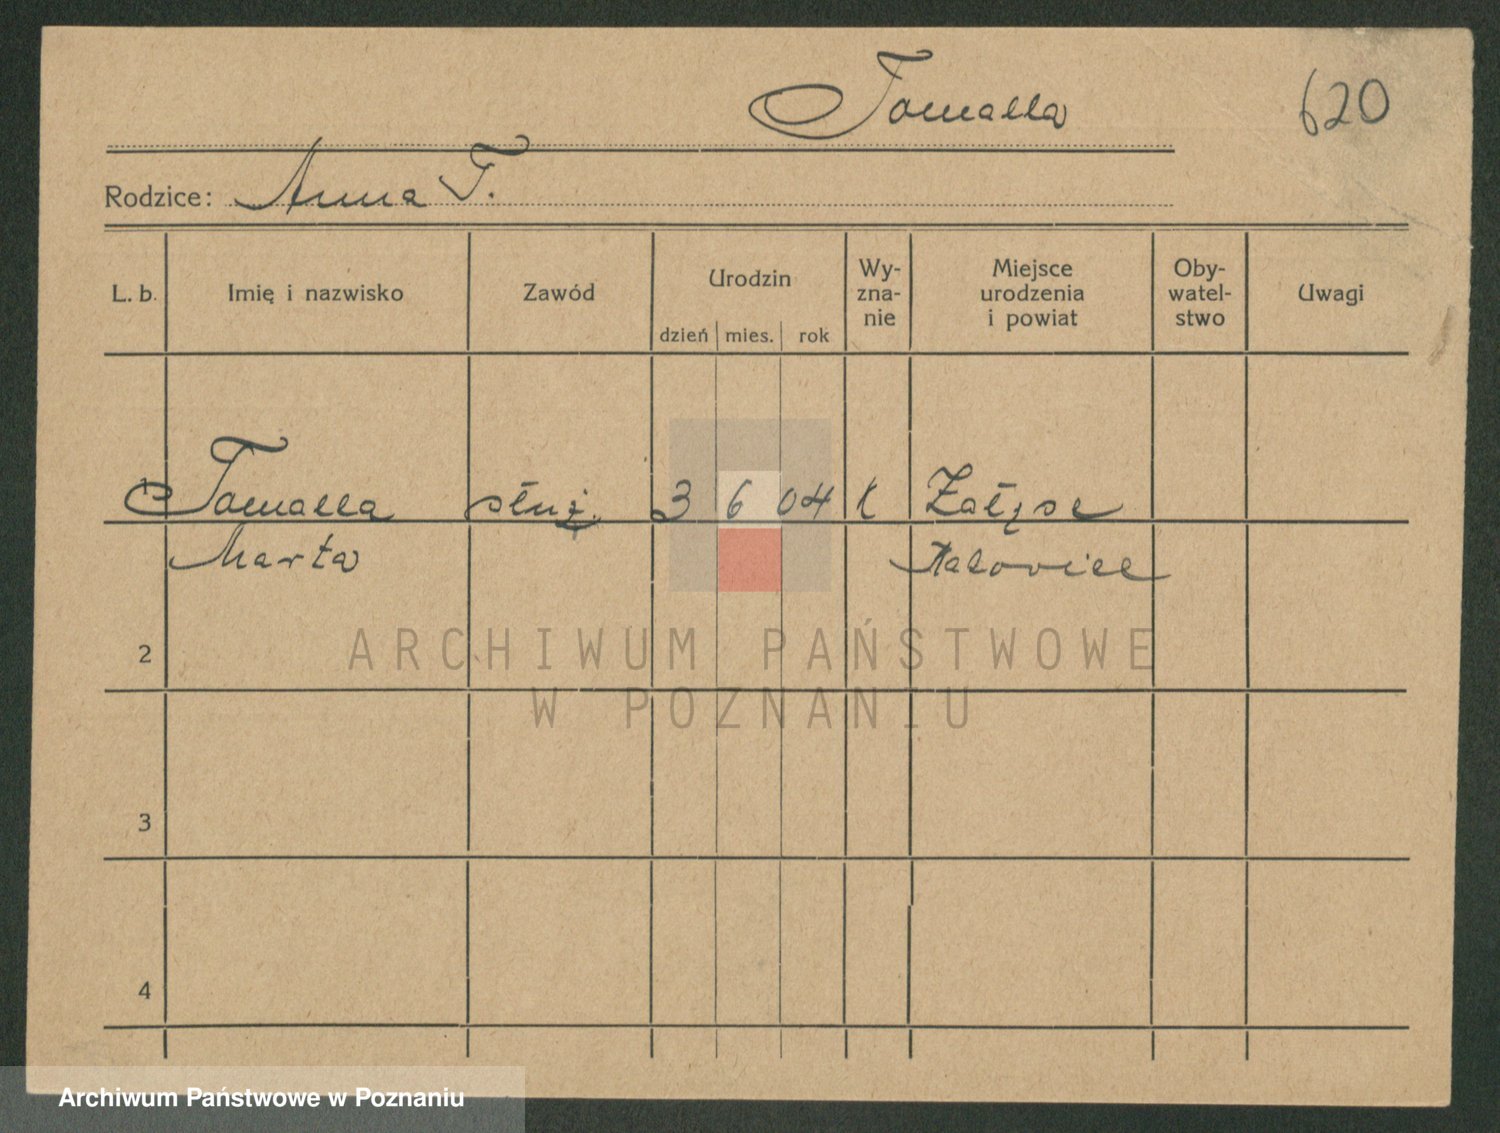 Tomalla
620
Rodzice: Anna T.
L. b. Imię i nazwisko Zawód Urodzin dzień mies. rok Wy-zna-nie Miejsce urodzenia i powiat Oby-watel-stwo Uwagi
1 Tomalla służ. 3 6 04 k Załęże
Marta Katowice
2
3
4
ARCHIWUM PAŃSTWOWE
W POZNANIU
Archiwum Państwowe w Poznaniu